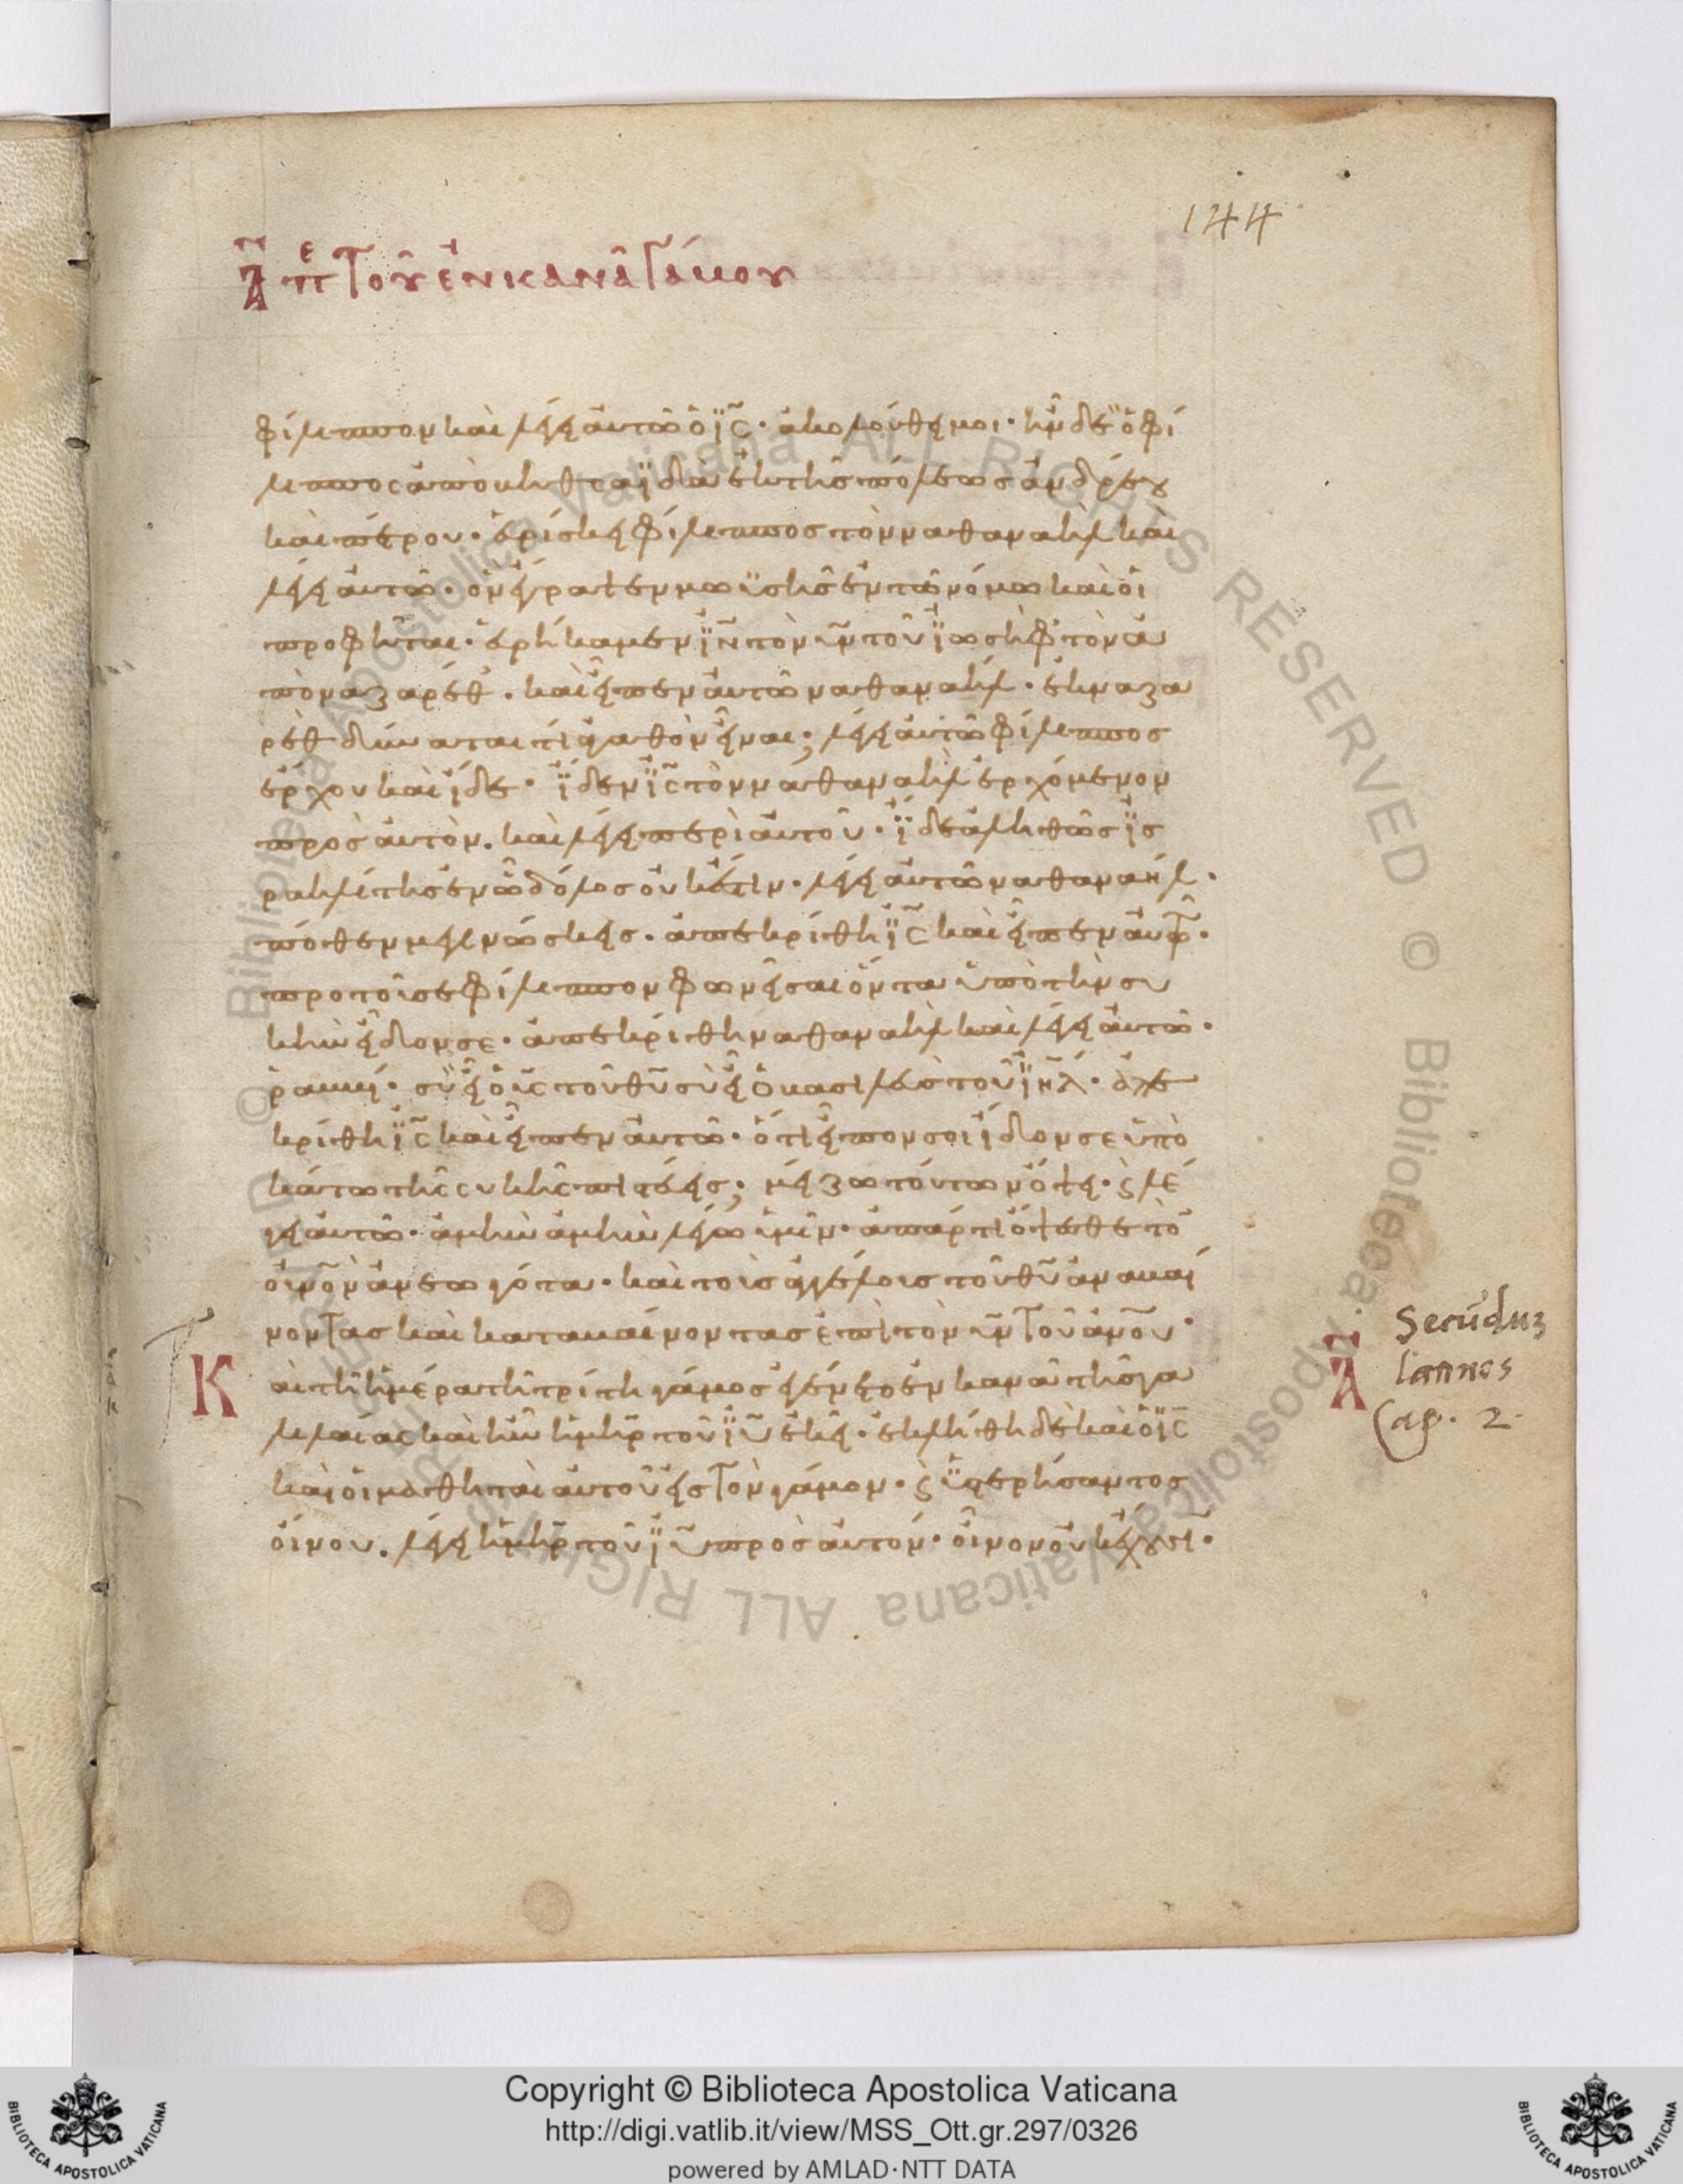 144
Α πε τοῦ ἐν κανᾶ γάμου
φίλιππον καὶ λέγει αὐτῶ ὁ ϊς· ἀκολούθει μοι· ἦν δὲ ὁ φί
λιππος ἀπὸ βηθσαϊδὰ ἐκ τῆς πόλεως ἀνδρέου
καὶ πέτρου· εὑρίσκει φίλιππος τὸν ναθαναὴλ καὶ
λέγει αὐτῶ· ὃν ἔγραψεν μωϋσῆς ἐν τῶ νόμω καὶ οἱ
προφῆται· εὑρήκαμεν ϊν τὸν υν τοῦ ϊωσὴφ τὸν ἀ
πὸ ναζαρέθ· καὶ εἶπεν αὐτῶ ναθαναήλ· ἐκ ναζα
ρὲθ δύναται τὶ ἀγαθὸν εἶναι; λέγει αὐτῶ φίλιππος
ἔρχου καὶ ἴδε· ϊδεν ϊς τὸν ναθαναὴλ ἐρχόμενον
πρὸς αὐτὸν. καὶ λέγει περὶ αὐτοῦ· ϊδε ἀληθῶς ϊσ
ραηλίτης ἐν ὧ δόλος οὐκ ἔστιν· λέγει αὐτῶ ναθαναήλ·
πόθεν με γινώσκεις· ἀπεκρίθη ϊς καὶ εἶπεν αὐτῶ·
πρὸ τοῖ σε φίλιππον φωνεῖσαι ὄντα ὑπὸ τὴν συ
κὴν εἶδον σε· ἀπεκρίθη ναθαναὴλ καὶ λέγει αὐτῶ·
ῥαββί· σὺ εἶ ὁ υς τοῦ θυ σὺ εἶ ὁ βασιλεὺς τοῦ ϊηλ· ἀπε
κρίθη ϊς καὶ εἶπεν αὐτῶ· ὅτι εἶπον σοι ἴδον σε ὑπὸ
κάτω τῆς συκῆς πιστεύεις; μείζω τούτων ὄψει· ϗ λέ
γει αὐτῶ· ἀμὴν ἀμὴν λέγω ὑμῖν· ἀπάρτι ὄψεσθε τὸ
οὐνον ἀνεωγότα· καὶ τοὺς ἀγγέλους τοῦ θυ ἀναβαί
νοντας καὶ καταβαίνοντας ἐπὶ τὸν υν τοῦ ἀνου·
Κ αὶ τῆ ἡμέρα τῆ τρίτη γάμος ἐγένετο ἐν κανᾶ τῆς γα
λιλαίας καὶ ἦν ἡ μηρ τοῦ ϊυ ἐκεῖ· ἐκλήθη δὲ καὶ ὁ ϊς
καὶ οἱ μαθηταὶ αὐτοῦ εἰς τὸν γάμον· ϗ ὑστερήσαντος
οἴνου. λέγει ἡ μηρ τοῦ ϊυ πρὸς αὐτόν· οἶνον οὐκ ἔχουσι·
Α
Cap. 2.
Copyright © Biblioteca Apostolica Vaticana
http://digi.vatlib.it/view/MSS_Ott.gr.297/0326
powered by AMLAD·NTT DATA
BIBLIOTECA APOSTOLICA VATICANA
BIBLIOTECA APOSTOLICA VATICANA
© Biblioteca Apostolica Vaticana ALL RIGHTS RESERVED
© Biblioteca Apostolica Vaticana ALL RIGHTS RESERVED